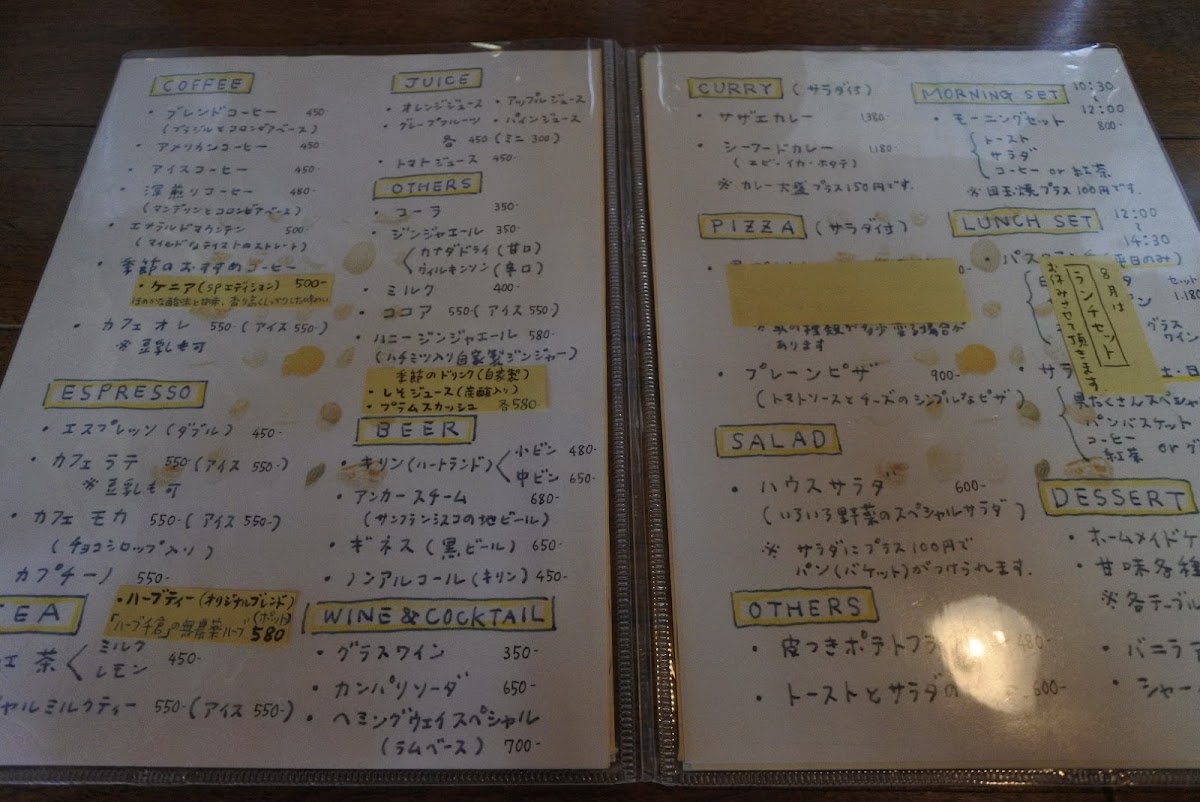 COFFEE
・ブレンドコーヒー 450
(ブラジルとコロンビアベース)
・アメリカンコーヒー 450-
・アイスコーヒー 450-
・深煎りコーヒー 480-
(マンデリンとコロンビアベース)
・エメラルドマウンテン 500-
(マイルドなテイストのストレート)
・季節のおすすめコーヒー
・ケニア(SPエディション) 500-
・カフェオレ 550-(アイス 550-)
※豆乳も可
ESPRESSO
・エスプレッソ(ダブル) 450-
・カフェラテ 550-(アイス 550-)
※豆乳も可
・カフェモカ 550-(アイス 550-)
(チョコシロップ入り)
カプチーノ 550-
TEA
・ハーブティー(オリジナルブレンド)
「ハーブ千倉」の無農薬ハーブ(ポット) 580
紅茶 ミルク 450-
レモン
ャルミルクティー 550-(アイス 550-)
JUICE
・オレンジジュース ・アップルジュース
・グレープフルーツ ・パインジュース
各 450(ミニ 300)
・トマトジュース 450-
OTHERS
・コーラ 350-
・ジンジャエール 350-
カナダドライ(甘口)
ウィルキンソン(辛口)
・ミルク 400-
・ココア 550(アイス 550)
・ハニージンジャエール 580-
(ハチミツ入り自家製ジンジャー)
季節のドリンク(自家製)
・しそジュース(炭酸入り)
・プラムスカッシュ 各580-
BEER
・キリン(ハートランド) 小ビン 480-
中ビン 650-
・アンカースチーム 680-
(サンフランシスコの地ビール)
・ギネス(黒ビール) 650-
・ノンアルコール(キリン) 450-
WINE&COCKTAIL
・グラスワイン 350-
・カンパリソーダ 650-
・ヘミングウェイスペシャル
(ラムベース) 700-
CURRY (サラダ付)
・サザエカレー 1,380-
・シーフードカレー 1,180-
(エビ・イカ・ホタテ)
※カレー大盛プラス150円です。
PIZZA (サラダ付)
0-
あります
・プレーンピザ 900-
(トマトソースとチーズのシンプルなピザ)
SALAD
・ハウスサラダ 600-
(いろいろ野菜のスペシャルサラダ)
※サラダにプラス100円で
パン(バケット)がつけられます.
OTHERS
・皮つきポテトフラ 480-
・トーストとサラダの 600-
MORNING SET 10:30
〜
12:00
・モーニングセット 800-
トースト
サラダ
コーヒー or 紅茶
※目玉焼プラス100円です.
LUNCH SET 12:00
〜
14:30
・パス 平日のみ)
セット
1,180
グラス
ワイン
8月は
ランチセット
お休みさせて頂きます.
・サラ 土・日
具だくさんスペシャ
パンバスケット
コーヒー
紅茶 or グ
DESSERT
・ホームメイドケ
・甘味各種
※各テーブル
・バニラア
・シャー